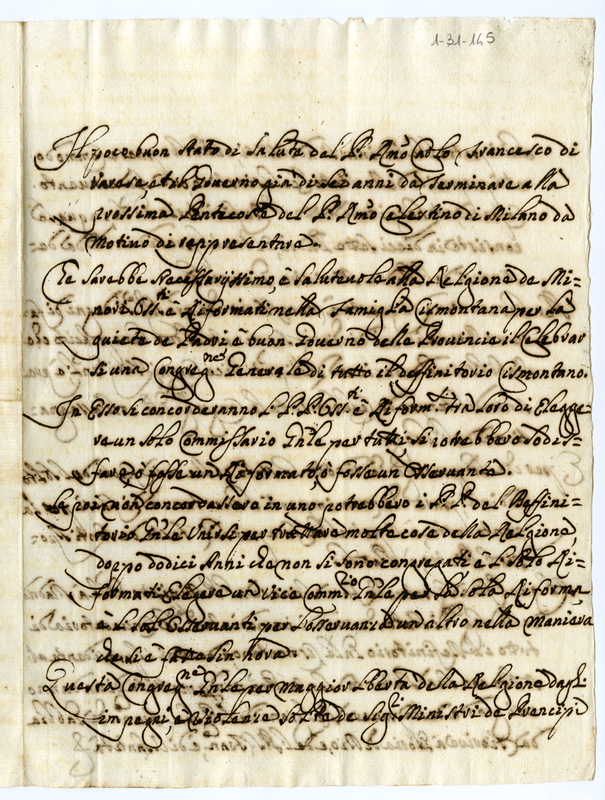 1-31-145
Il poco buon stato di salute del P. Rmo Carlo Francesco di
Varese, è tal Governo già di sei anni da terminare alla
prossima Pentecoste del P. Rmo Celestino di Milano da
motivo di rappresentare.
Che sarebbe necessarijssimo, è salutevole alla Religione de Mi=
nori Oss.ti è Riformati nella famiglia Cismontana per la
quiete de Padri è buon Governo delle Provincie il Celebrar
si una Congreg.ne Generale di tutto il deffinitorio Cismontano.
In Esso si concorderanno L. P. P. Oss.ti è Riform.ti tra loro di Elegge=
re un solo Commissario Gn͞le per tutti si potrebbero sodis=
fare, ò fosse un Riformato, ò fosse un Osservante.
Se poi non concordassero in uno potrebbero i P. P. del Deffini=
torio Gn͞le Unirsi per trattare molte cose della Religione
doppo dodici Anni che non si sono congregati è L. soli Ri=
formati Elegere un Vice Comm.rio Gn͞le per la sola Riforma
è L. soli Osservanti per l'osservanza un altro nella maniera
che si è fatto sin hora
Questa Congreg.ne Gn͞le per maggior libertà della Religione dagli
impegni, è Violenze solite de Sig.ri Ministri de Prencipi